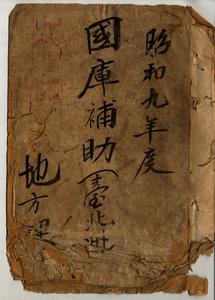 昭和九年度
國庫補助(臺北州
地方課